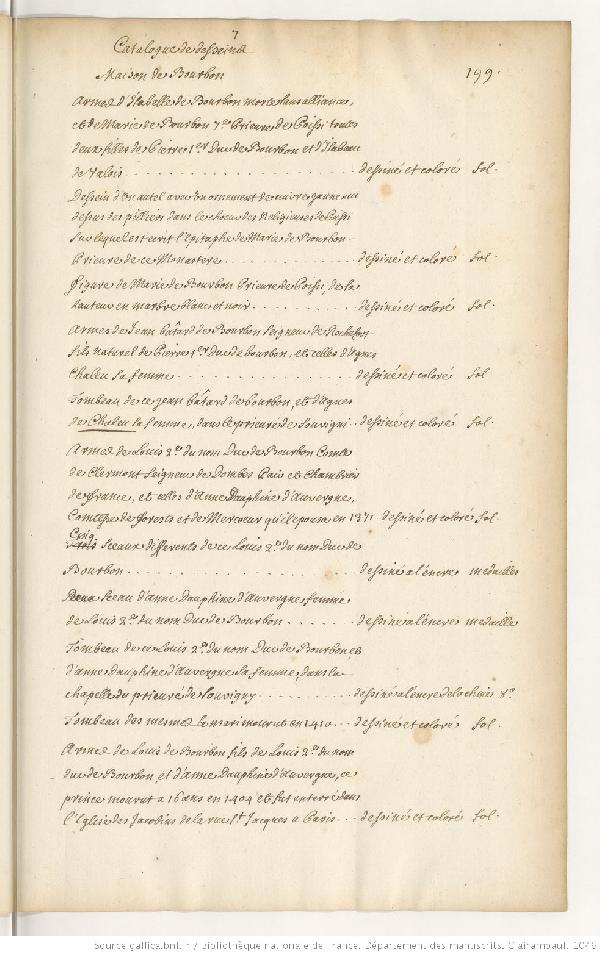 7
Catalogue de desseins
Maison de Bourbon
199.
Armes d'Isabelle de Bourbon morte sans alliance,
et de Marie de Bourbon 7.e Prieure de Poissi toutes
deux filles de Pierre 1.er Duc de Bourbon et d'Isabeau
de Valois . . . dessiné et coloré fol.
Dessein d'un autel avec un ornement de cuivre jaune au
dessus des pilliers dans le choeur des Religieuses de Poissi
sur lequel est ecrit l'Epitaphe de Marie de Bourbon
Prieure de ce Monastere . . . dessiné et coloré fol.
figure de Marie de Bourbon Prieure de Poissi, de sa
hauteur en marbre blanc et noir . . . dessiné et coloré fol.
Armes de Jean batard de Bourbon Seigneur de Rochefort
fils naturel de Pierre 1.er Duc de bourbon, et celles d'Agnes
Chaleu sa femme . . . dessiné et coloré fol
Tombeau de ce jean batard de bourbon, et d'agnes
de Chaleu sa femme, dans le prieuré de Souvigni . dessiné et coloré fol.
Armes de Louis 2.e du nom Duc de Bourbon Comte
de Clermont Seigneur de Dombes Pair et Chambrier
de france, et celles d'Anne Dauphine d'Auvergne,
Comtesse de forests et de Mercoeur qu'il epousa en 1371 dessiné et coloré fol.
Cinq
Sceaux differents de ce Louis 2.e du nom Duc de
Bourbon . . . dessiné a l'encre medailles
Sceau d'anne Dauphine d'Auvergne femme
de Louis 2.e du nom Duc de Bourbon . . . dessiné a l'encre medaille
Tombeau de ce Louis 2.e du nom Duc de Bourbon et
d'anne Dauphine d'Auvergne sa femme, dans la
chapelle du prieuré de Souvigny . . . dessiné a l'encre de la chine 8.o
Tombeau des mesmes le mari mourut en 1410 . . . dessiné et coloré fol.
Armes de Louis de Bourbon fils de Louis 2.e du nom
duc de Bourbon et d'anne Dauphine d'Auvergne, ce
prince mourut a 16 ans en 1404 et fut enterré dans
l'Eglise des Jacobins de la rue S.t Jacques a Paris . . . dessiné et coloré fol.
Source gallica.bnf.fr / Bibliothèque nationale de France. Département des manuscrits. Clairambault 1046